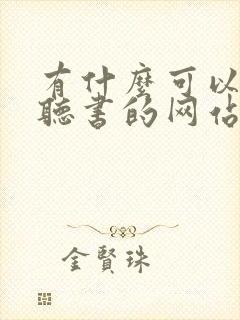 有什麼可以
聽書的网佔
金賢珠